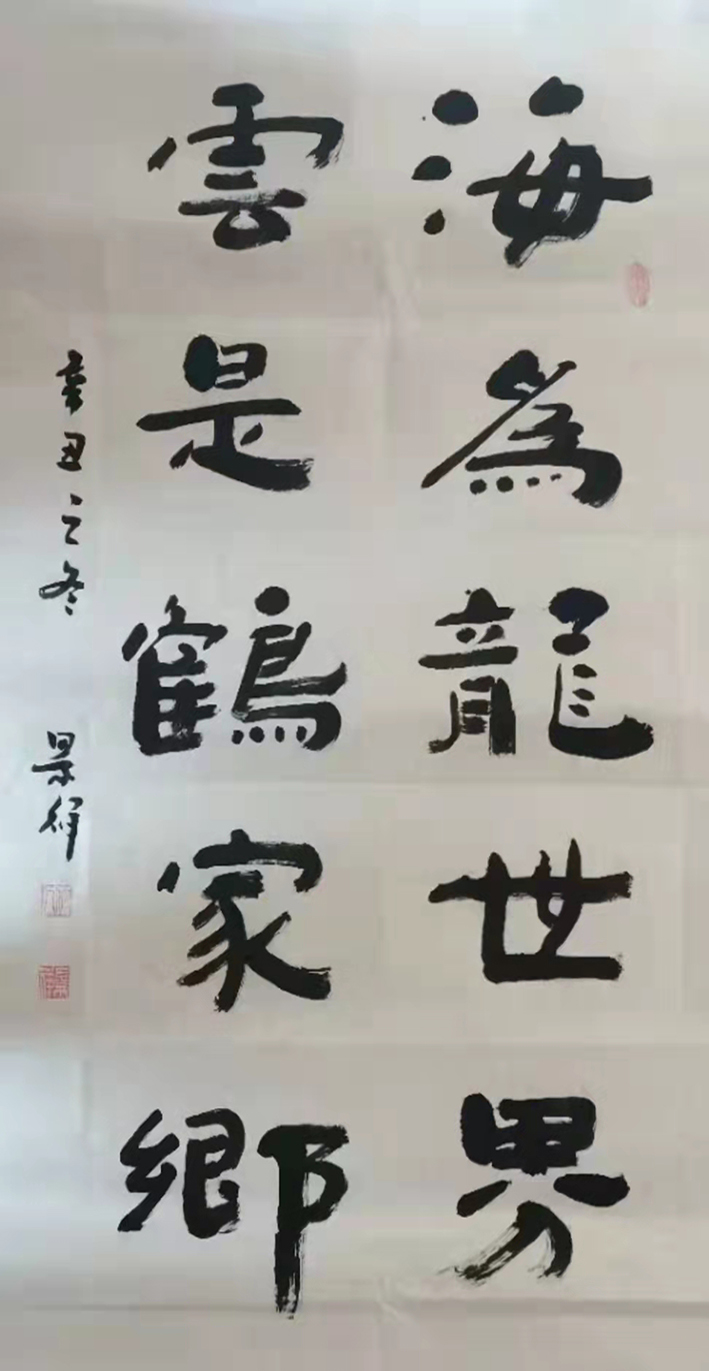 海為龍世界
雲是鶴家鄉
辛丑之冬 景祥